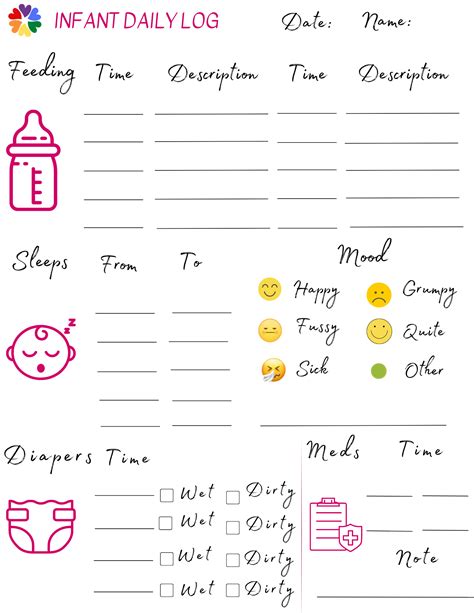 INFANT DAILY LOG Date: Name:
Feeding Time Description Time Description
Sleeps From To
Mood
Happy Grumpy
Fussy Quite
Sick Other
Diapers Time
Wet Dirty
Wet Dirty
Wet Dirty
Wet Dirty
Meds Time
Note